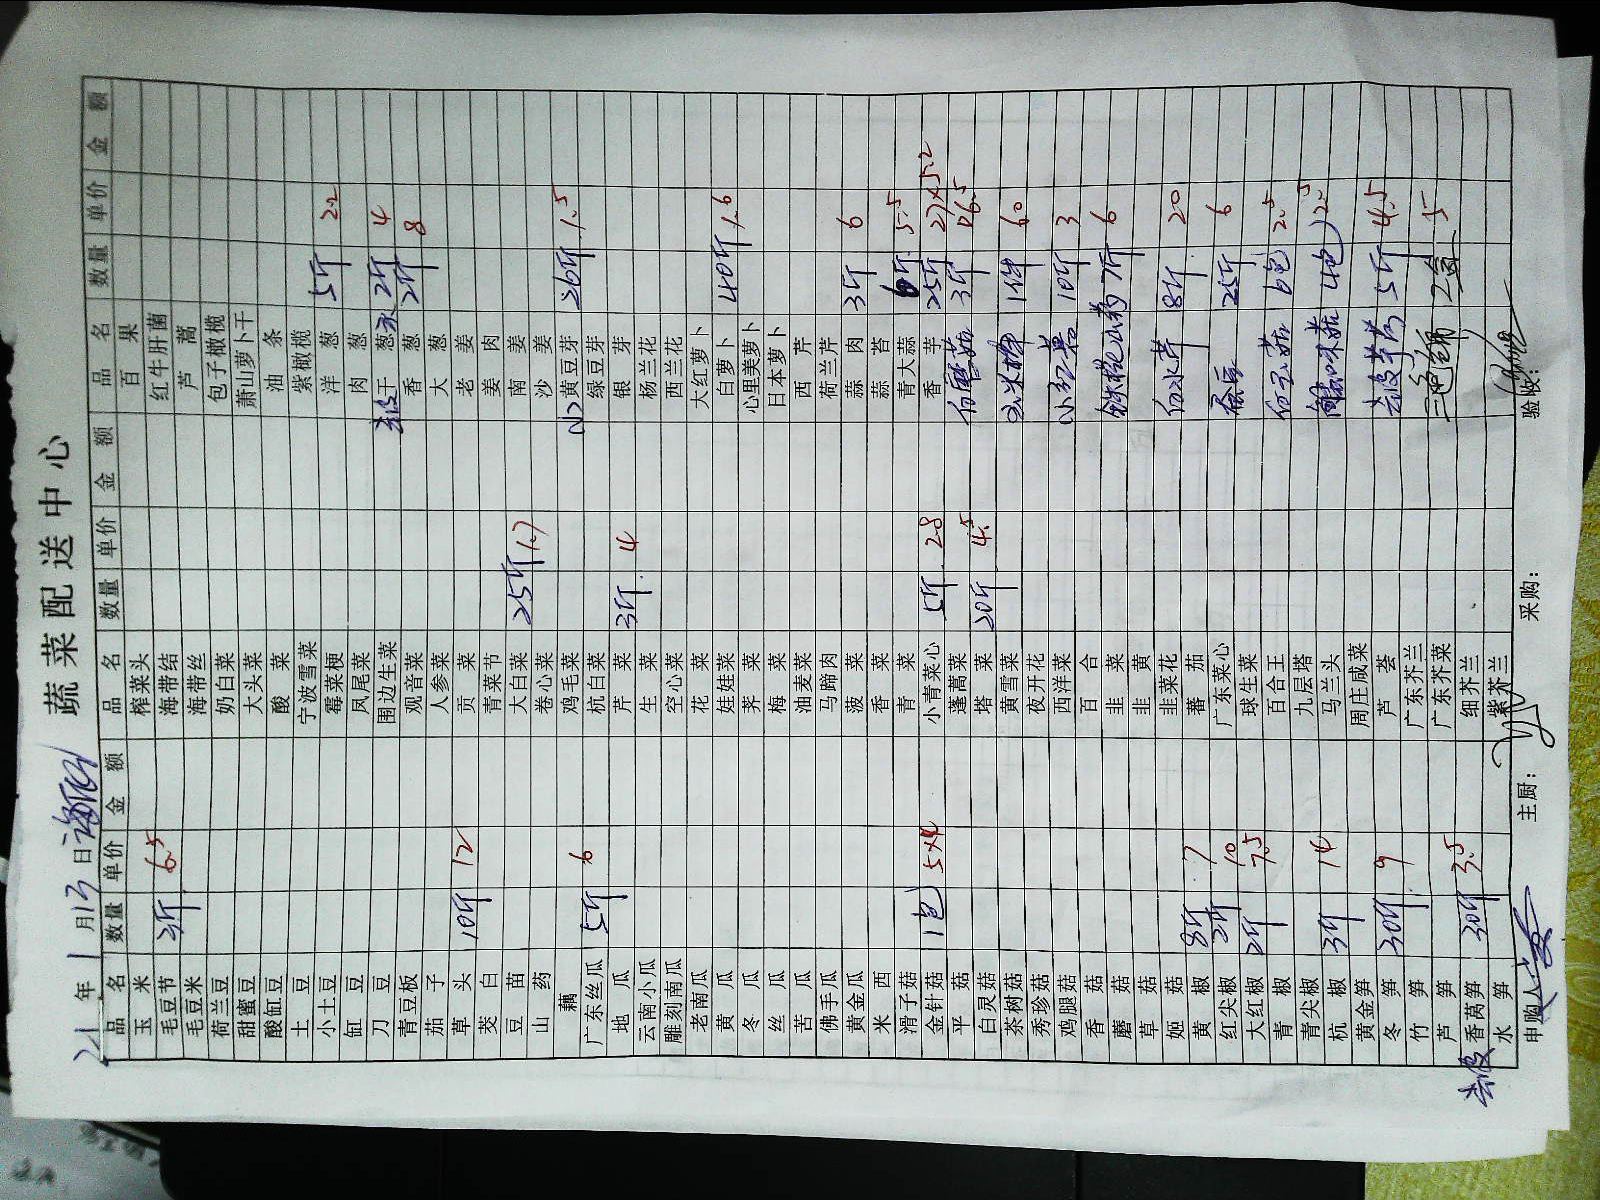 蔬菜配送中心
21年1月13日
品名 数量 单价 金额 品名 数量 单价 金额 品名 数量 单价 金额
玉米 榨菜头 百果
毛豆节 3斤 6.5 海带结 红牛肝菌
毛豆米 海带丝 芦蒿
荷兰豆 奶白菜 包子橄榄
甜蜜豆 大头菜 萧山萝卜干
酸缸豆 酸菜 油条
土豆 宁波雪菜 紫橄榄
小土豆 霉菜梗 洋葱 5斤 2.2
缸豆 凤尾菜 肉葱
刀豆 围边生菜 去皮干葱 2斤 4
青豆板 观音菜 香葱 2斤 8
茄子 人参菜 大葱
草头 10斤 12 贡菜 老姜
茭白 青菜节 姜肉
豆苗 大白菜 25斤 1.7 南姜
山药 卷心菜 沙姜
藕 鸡毛菜 黄豆芽 26斤 1.5
广东丝瓜 5斤 6 杭白菜 绿豆芽
地瓜 芹菜 3斤 4 银芽
云南小瓜 生菜 杨兰花
雕刻南瓜 空心菜 西兰花
老南瓜 花菜 大红萝卜
黄瓜 娃娃菜 白萝卜 40斤 1.6
冬瓜 荠菜 心里美萝卜
丝瓜 梅菜 日本萝卜
苦瓜 油麦菜 西芹
佛手瓜 马蹄肉 荷兰芹
黄金瓜 菠菜 蒜肉 3斤 6
米西 香菜 蒜苔
滑子菇 青菜 青大蒜 6斤 5.5
金针菇 1包 5×4 小青菜心 5斤 2.8 香芋 25斤 27×5.2
平菇 蓬蒿菜 白蘑菇 3斤 6.5
白灵菇 塔菜 20斤 4.5
茶树菇 黄雪菜 1件 60
秀珍菇 夜开花
鸡腿菇 西洋菜 小红薯 10斤 3
香菇 百合
蘑菇 韭菜 铁棍山药 7斤 6
草菇 韭黄
姬菇 韭菜花 8斤 20
黄椒 8斤 7 蕃茄
红尖椒 2斤 10 广东菜心 蚕豆 25斤 6
大红椒 2斤 7.5 球生菜
青椒 百合王 白玉菇 6包 2.5
青尖椒 九层塔
杭椒 3斤 14 马兰头 蟹味菇 4包 2.5
黄金笋 周庄咸菜
冬笋 30斤 9 芦荟 去皮芋艿 5斤 4.5
竹笋 广东芥兰
芦笋 广东芥菜 2盒 5
去皮香莴笋 30斤 3.5 细芥兰
水笋 紫芥兰
申购人: 主厨: 采购: 验收: